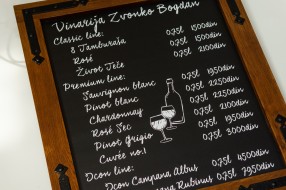 Vinarija Zvonko Bogdan
Classic line:
8 Tamburaša 0,75l 1500din
Rosé 0,75l 1500din
Život Teče 0,75l 2100din
Premium line:
Sauvignon blanc 0,75l 1950din
Pinot blanc 0,75l 2250din
Chardonnay 0,75l 2250din
Rosé Sec 0,75l 1950din
Pinot Grigio 0,75l 2250din
Cuvée no.1 0,75l 3000din
Icon line:
Icon Campana Albus 0,75l 4500din
Icon Campana Rubinus 0,75l 7950din